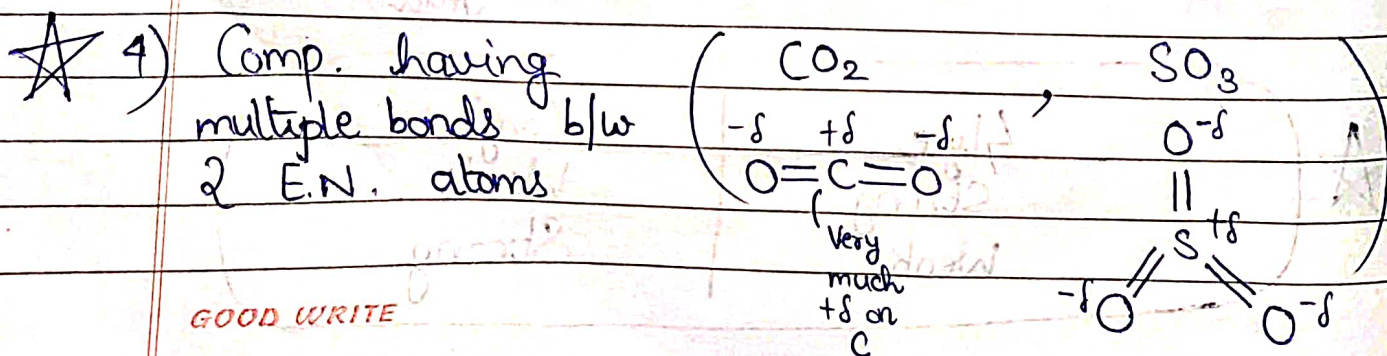 4) Comp. having
multiple bonds b/w
2 E.N. atoms
(CO₂ , SO₃)
-δ +δ -δ
O=C=O
Very
much
+δ on
C
O-δ
||
S+δ
-δO O-δ
GOOD WRITE